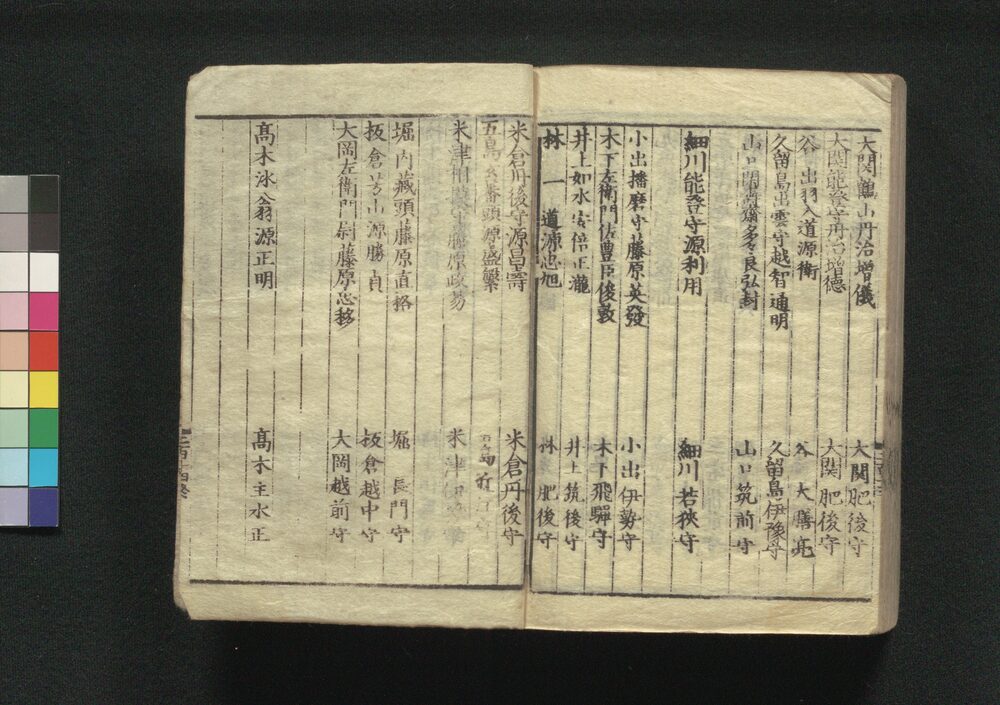 大関鶴山丹治増儀　大関肥後守
大関能登守丹治増徳　大関肥後守
谷出羽入道源衛　谷大膳亮
久留島出雲守越智通明　久留島伊豫守
山口　齋多々良弘封　山口筑前守
細川能登守源利用　細川若狭守
小出播磨守藤原英發　小出伊勢守
木下左衛門佐豊臣俊敦　木下飛騨守
井上如水安倍正瀧　井上筑後守
林一道源忠旭　林肥後守
米倉丹後守源昌壽　米倉丹後守
五島　番頭源盛繁　五島
米津相模守藤原政易　米津伊勢守
堀内蔵頭藤原直格　堀長門守
板倉　山源勝貞　板倉越中守
大岡左衛門尉藤原忠移　大岡越前守
髙木泳翁源正明　髙木主水正